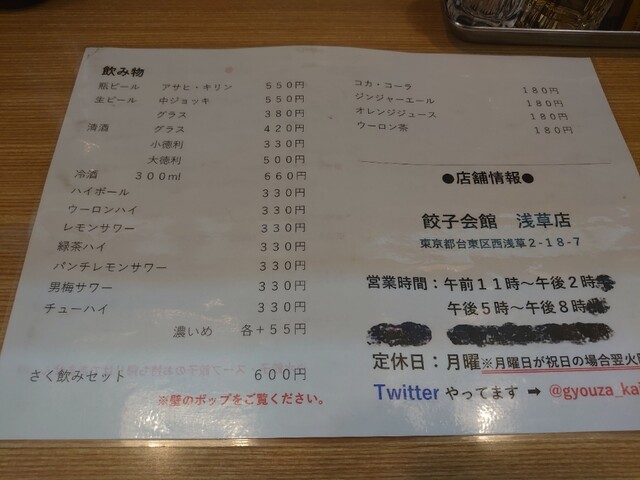 飲み物
瓶ビール アサヒ・キリン 550円
生ビール 中ジョッキ 550円
グラス 380円
清酒 グラス 420円
小徳利 330円
大徳利 500円
冷酒 300ml 660円
ハイボール 330円
ウーロンハイ 330円
レモンサワー 330円
緑茶ハイ 330円
パンチレモンサワー 330円
男梅サワー 330円
チューハイ 330円
濃いめ 各+55円
さく飲みセット 600円
※壁のポップをご覧ください。
コカ・コーラ 180円
ジンジャーエール 180円
オレンジジュース 180円
ウーロン茶 180円
●店舗情報●
餃子会館 浅草店
東京都台東区西浅草2-18-7
営業時間:午前11時~午後2時
午後5時~午後8時
定休日:月曜※月曜日が祝日の場合翌火
Twitter やってます ➡ @gyouza_ka